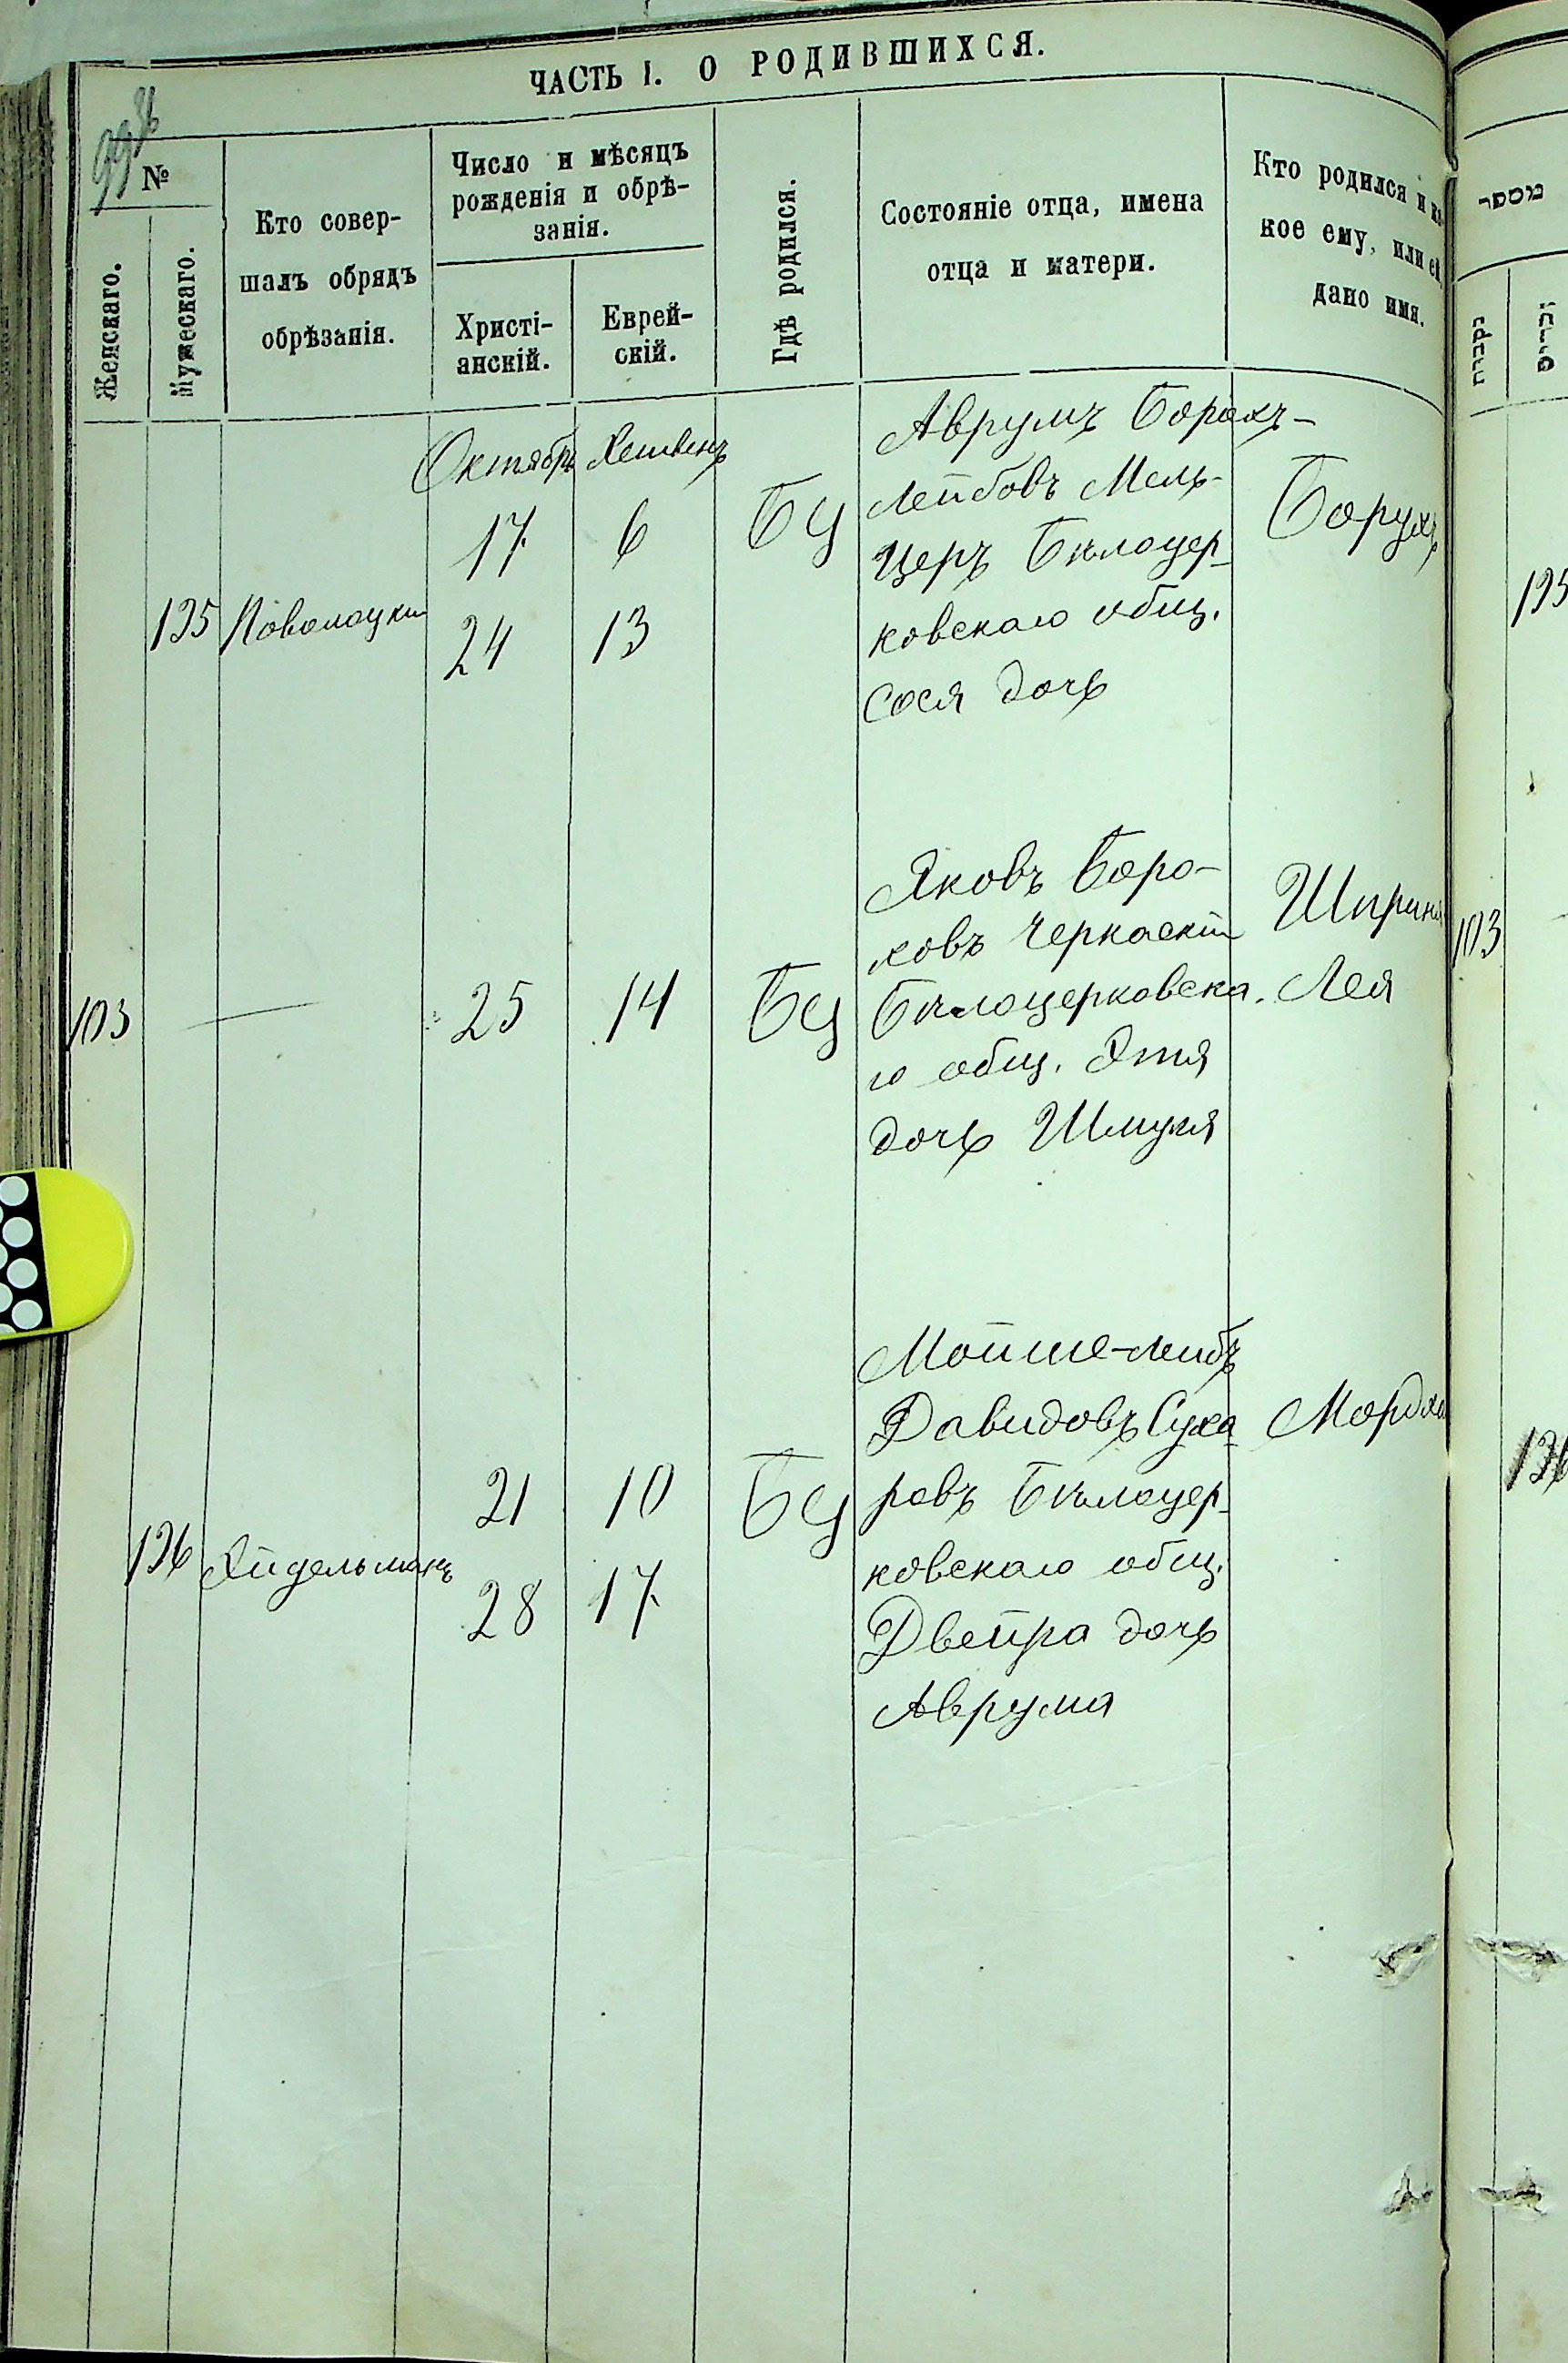 ЧАСТЬ I. О РОДИВШИХСЯ.
№
Женскаго.
Мужескаго.
Кто совер-
шалъ обрядъ
обрѣзанія.
Число и мѣсяцъ
рожденія и обрѣ-
занія.
Христі-
анскій.
Еврей-
скій.
Гдѣ родился.
Состояніе отца, имена
отца и матери.
Кто родился и ка-
кое ему, или ей
дано имя.
Октябрь Хешвенъ
135 Поволоцкій
17 6
24 13
БЦ
Аврумъ Борохъ-
Лейбовъ Мель-
церъ Бѣлоцер-
ковскаго общ.
Сося дочь
Борухъ
103 — 25 14 БЦ
Яковъ Боро-
ховъ Черкаскій
Бѣлоцерковска-
го общ. Этя
дочь Шмуля
Шприня
Лея
136 Эйдельманъ
21 10
28 17
БЦ
Мойше-Лейбъ
Давидовъ Суха-
ровъ Бѣлоцер-
ковскаго общ.
Двейра дочь
Аврума
Мордха
מספר
נקבות
זכרים
135
103
136